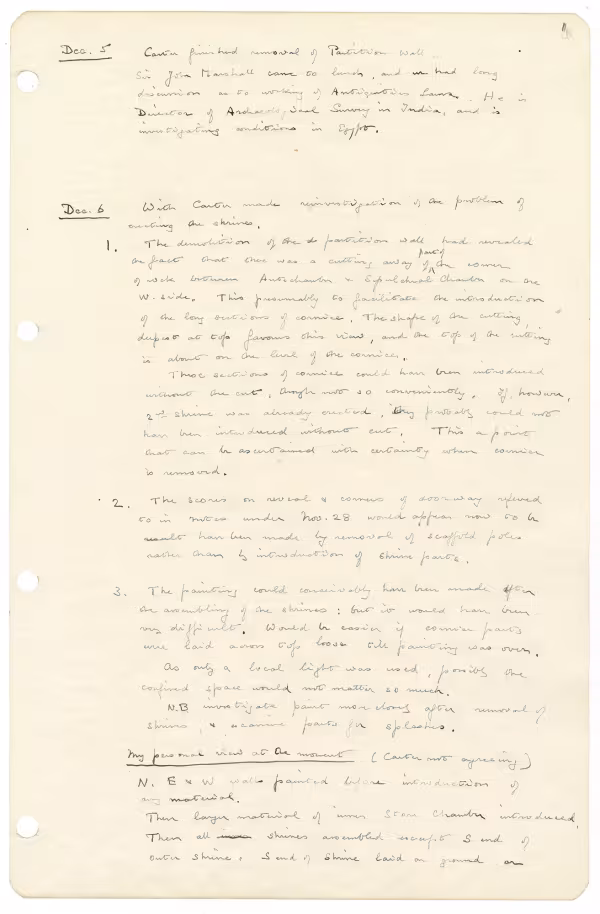 Dec. 5 Carter finished removal of Partition wall.
Sir John Marshall came to lunch, and we had long
discussion as to working of Antiquities Laws. He is
Director of Archaeological Survey in India, and is
investigating conditions in Egypt.
Dec. 6 With Carter made reinvestigation of the problem of
erecting the shrines.
1. The demolition of the partition wall had revealed
the fact that there was a cutting away of part of the corner
of rock between Antechamber & Sepulchral Chamber on the
W. side. This presumably to facilitate the introduction
of the long sections of cornice. The shape of the cutting,
deepest at top, favours this view, and the top of the cutting
is about on the level of the cornice.
These sections of cornice could have been introduced
without the cut, though not so conveniently. If, however,
2nd shrine was already erected, they probably could not
have been introduced without cut. This a point
that can be ascertained with certainty when cornice
is removed.
2. The scores on reveal & corners of doorway referred
to in notes under Nov. 28 would appear now to be
result have been made by removal of scaffold poles
rather than by introduction of shrine parts.
3. The painting could conceivably have been made after
the assembling of the shrines: but it would have been
very difficult. Would be easier if cornice parts
were laid across top loose till painting was over.
As only a local light was used, possibly the
confined space would not matter so much.
N.B investigate paint more closely after removal of
shrines, & examine parts for splashes.
My personal view at the moment (Carter not agreeing)
N. E & W walls painted before introduction of
any material.
Then larger material of inner Store Chamber introduced.
Then all shrines assembled except S end of
outer shrine. S end of shrine laid on ground on